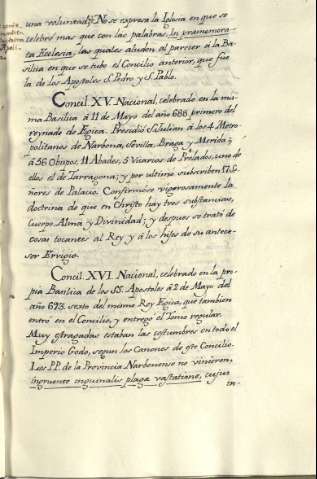 una voluntad. No se expresa la Iglesia en que se
celebró mas que con las palabras, in præmemora-
ta Ecclesia, las quales aluden al parecer á la Ba-
silica en que se tubo el Concilio anterior, que fue
la de los Apostoles S. Pedro y S. Pablo.
Concil. XV. Nacional, celebrado en la mis-
ma Basilica á 11 de Mayo del año 688 primero del
reynado de Egica. Presidió S. Julian á los 4 Metro-
politanos de Narbona, Sevilla, Braga y Merida;
á 56 Obispos, 11 Abades, 5 Vicarios de Prelados, uno de
ellos el de Tarragona; y por ultimo subscriben 17 Se-
ñores de Palacio. Confirmóse vigorosamente la
doctrina de que en Christo hay tres substancias,
Cuerpo, Alma y Divinidad; y despues se trató de
cosas tocantes al Rey y á los hijos de su antece-
sor Ervigio.
Concil. XVI. Nacional, celebrado en la pro-
pia Basilica de los SS. Apostoles á 2 de Mayo del
año 693. sexto del mismo Rey Egica, que tambien
entró en el Concilio, y entregó el Tomo regular.
Muy estragadas estaban las costumbres en todo el
Imperio Godo, segun los Canones de este Concilio.
Los PP. de la Provincia Narbonense no vinieron,
ingruente inguinalis plagæ vastatione, cujus
in-